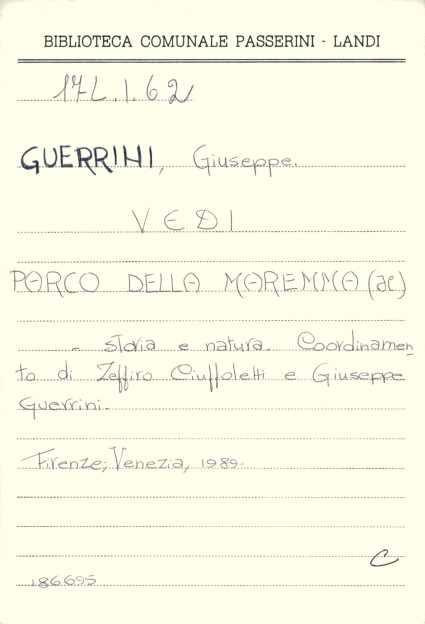 BIBLIOTECA COMUNALE PASSERINI - LANDI
17L.I.62
GUERRINI, Giuseppe.
VEDI
PARCO DELLA MAREMMA (Il)
- storia e natura. Coordinamen
to di Zeffiro Ciuffoletti e Giuseppe
Guerrini.
Firenze; Venezia, 1989.
C
186695